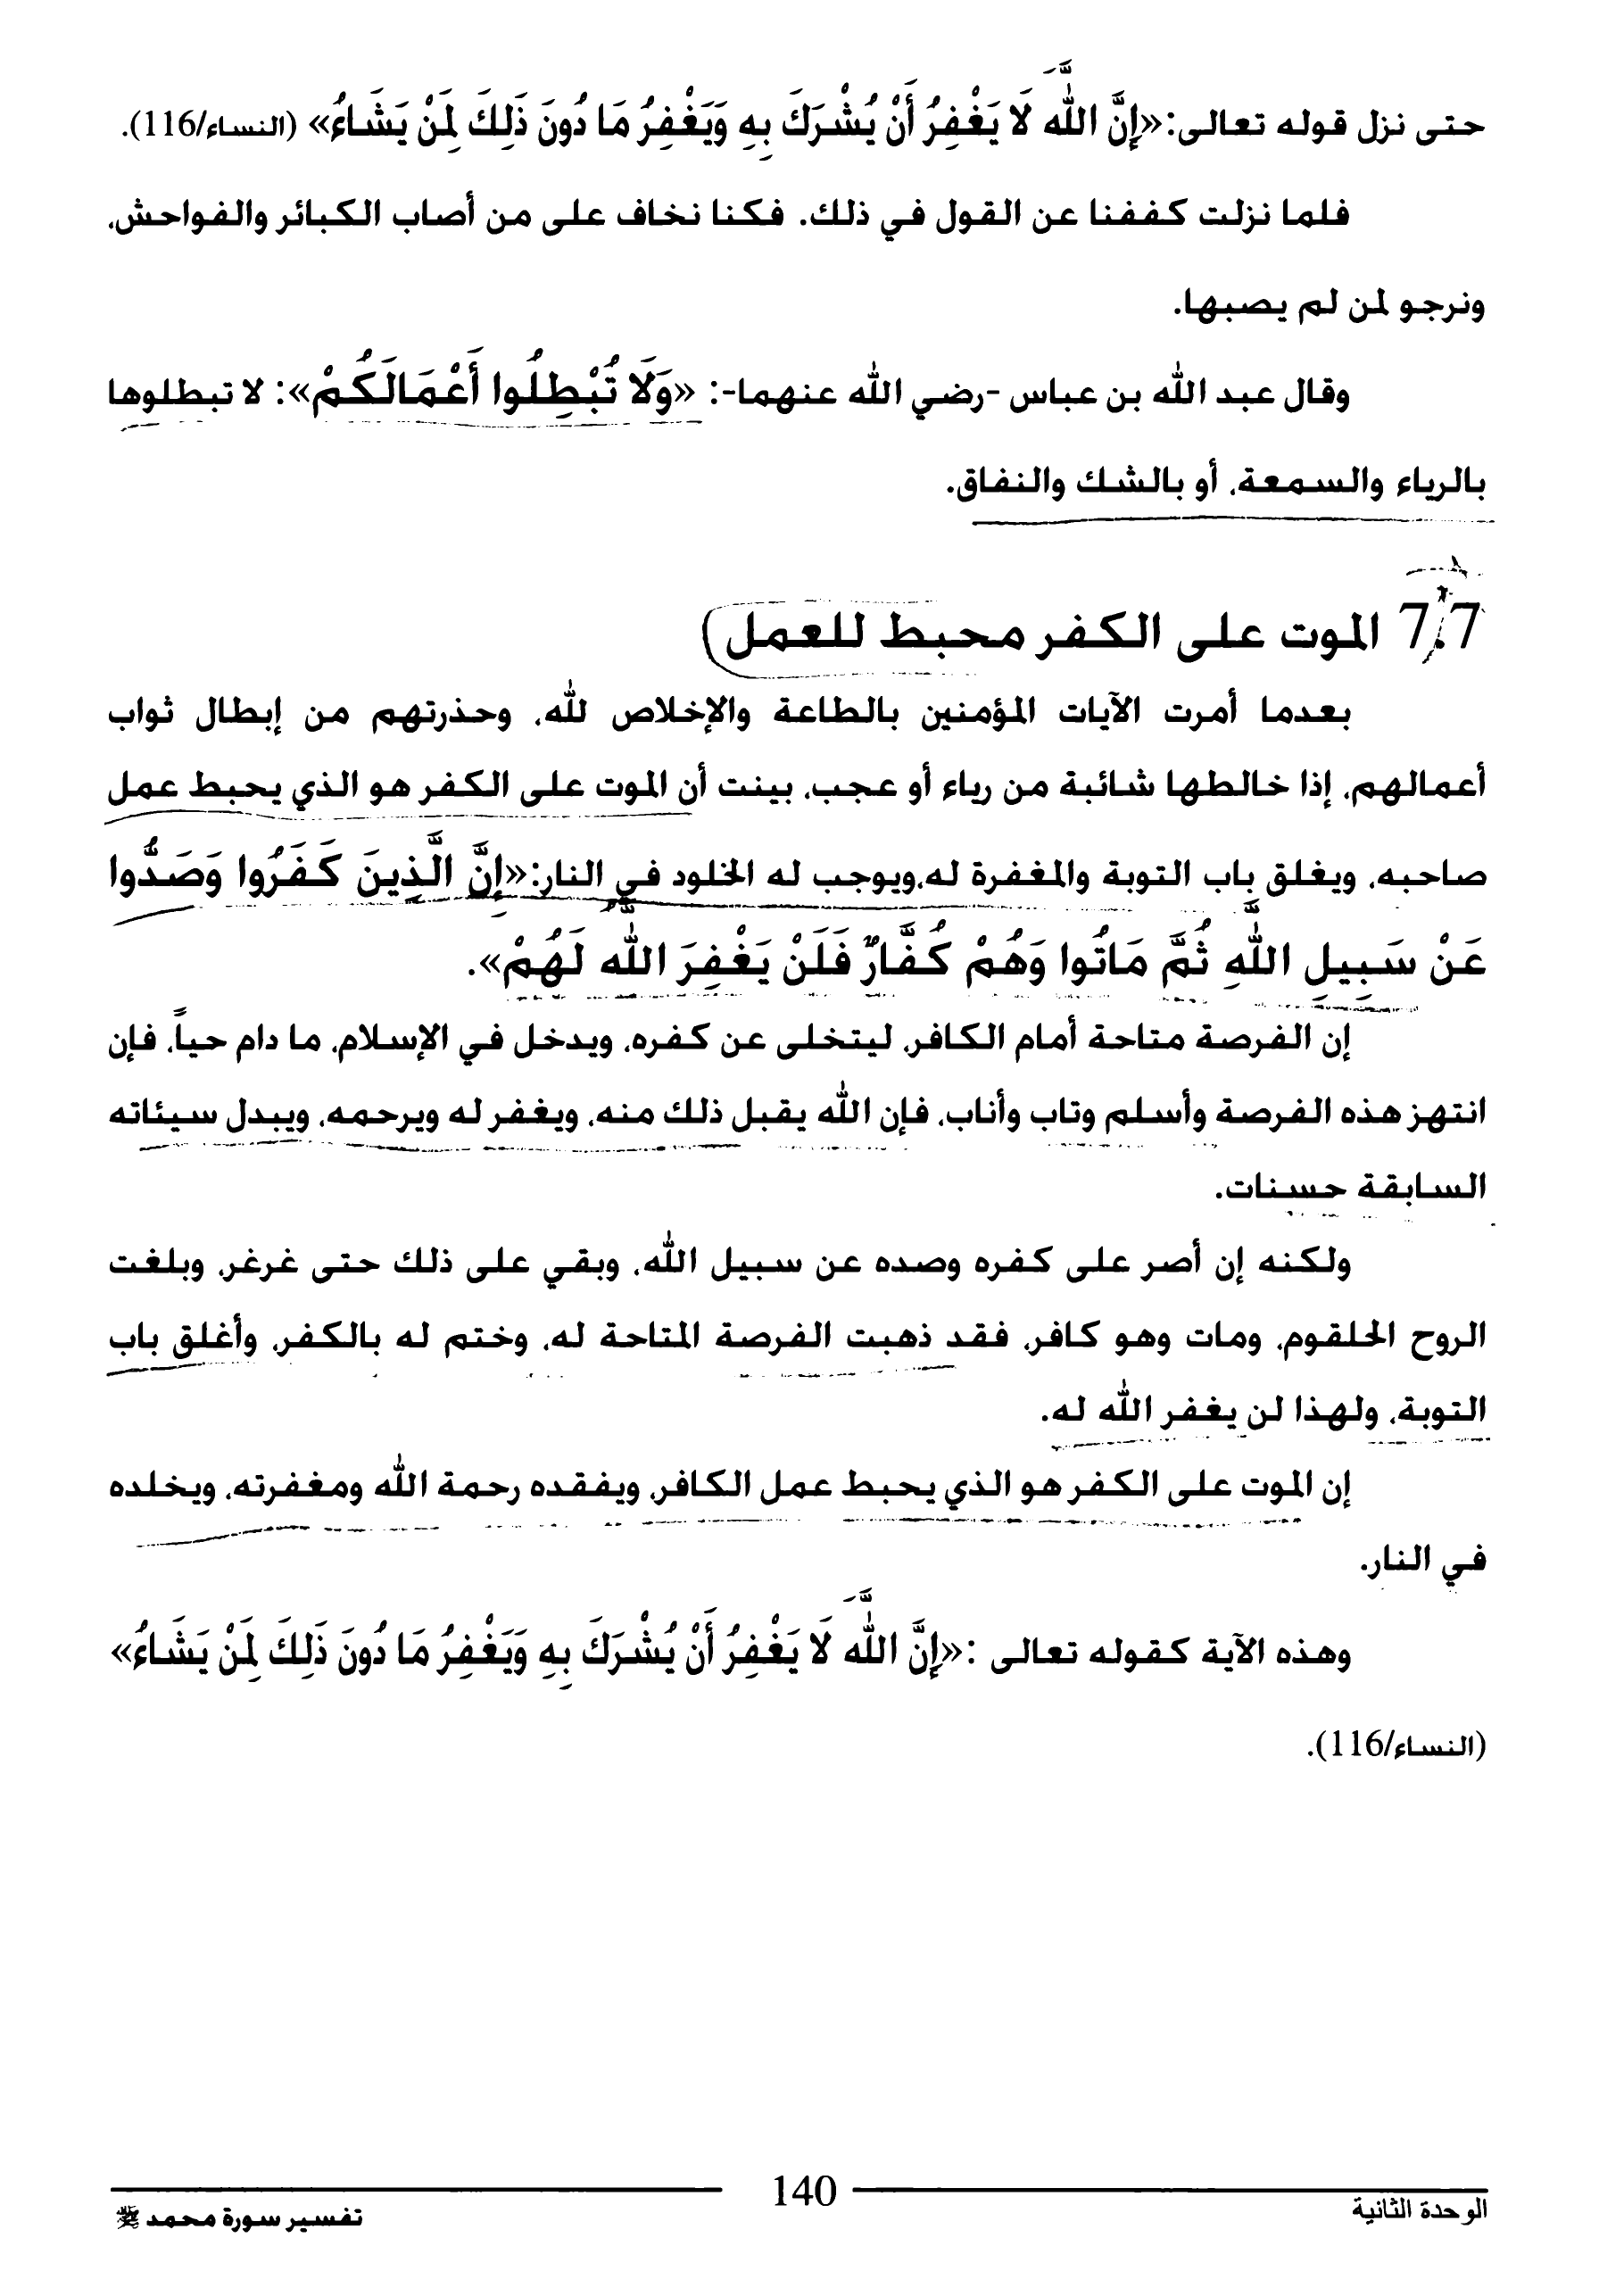 حتى نزل قوله تعالى:«إِنَّ اللَّهَ لَا يَغْفِرُ أَنْ يُشْرَكَ بِهِ وَيَغْفِرُ مَا دُونَ ذَلِكَ لِمَنْ يَشَاءُ» (النساء/116).
فلما نزلت كففنا عن القول في ذلك. فكنا نخاف على من أصاب الكبائر والفواحش،
ونرجو لمن لم يصبها.
وقال عبد الله بن عباس -رضي الله عنهما-: «وَلَا تُبْطِلُوا أَعْمَالَكُمْ»: لا تبطلوها
بالرياء والسمعة، أو بالشك والنفاق.
7.7 الموت على الكفر محبط للعمل
بعدما أمرت الآيات المؤمنين بالطاعة والإخلاص لله، وحذرتهم من إبطال ثواب
أعمالهم، إذا خالطها شائبة من رياء أو عجب، بينت أن الموت على الكفر هو الذي يحبط عمل
صاحبه، ويغلق باب التوبة والمغفرة له،ويوجب له الخلود في النار:«إِنَّ الَّذِينَ كَفَرُوا وَصَدُّوا
عَنْ سَبِيلِ اللَّهِ ثُمَّ مَاتُوا وَهُمْ كُفَّارٌ فَلَنْ يَغْفِرَ اللَّهُ لَهُمْ».
إن الفرصة متاحة أمام الكافر، ليتخلى عن كفره، ويدخل في الإسلام، ما دام حياً، فإن
انتهز هذه الفرصة وأسلم وتاب وأناب، فإن الله يقبل ذلك منه، ويغفر له ويرحمه، ويبدل سيئاته
السابقة حسنات.
ولكنه إن أصر على كفره وصده عن سبيل الله، وبقي على ذلك حتى غرغر، وبلغت
الروح الحلقوم، ومات وهو كافر، فقد ذهبت الفرصة المتاحة له، وختم له بالكفر، وأغلق باب
التوبة، ولهذا لن يغفر الله له.
إن الموت على الكفر هو الذي يحبط عمل الكافر، ويفقده رحمة الله ومغفرته، ويخلده
في النار.
وهذه الآية كقوله تعالى :«إِنَّ اللَّهَ لَا يَغْفِرُ أَنْ يُشْرَكَ بِهِ وَيَغْفِرُ مَا دُونَ ذَلِكَ لِمَنْ يَشَاءُ»
(النساء/116).
الوحدة الثانية
140
تفسير سورة محمد ﷺ